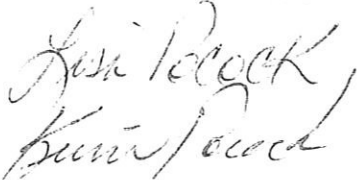 Lisa Pocock
Kevin Pocock